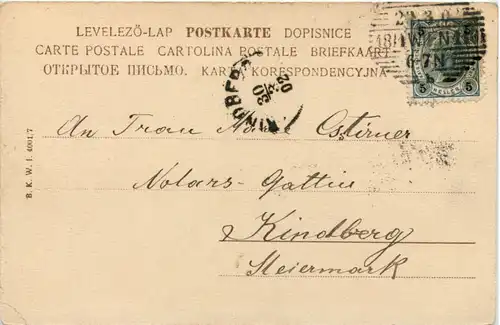 LEVELEZŐ-LAP POSTKARTE DOPISNICE
CARTE POSTALE CARTOLINA POSTALE BRIEFKAART
ОТКРЫТОЕ ПИСЬМО. KARTA KORESPONDENCYJNA
KINDBERG
30
02
6-7N
5 HELLER 5
B. K. W. I. 4001/7
An Frau
Notars-Gattin
Kindberg
Steiermark